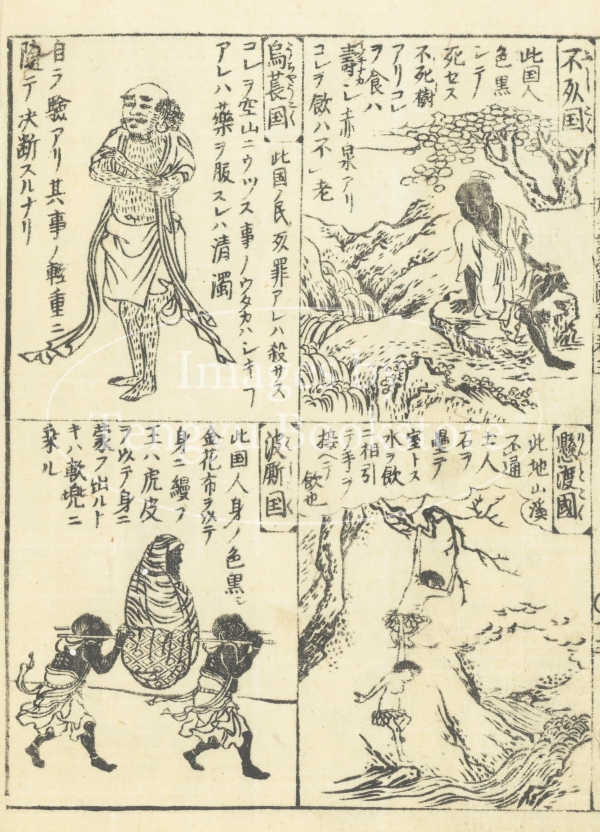 不死国
此国人
色黒
シテ
死セス
不死樹
アリコレ
ヲ食ハ
寿シ赤泉アリ
イノチナカシ
コレヲ飲ハ不レ老
烏萇国
うちやうこく
此国ノ民死罪アレハ殺サス
コレヲ空山ニウツス事ノウタカハシキヿ
アレハ薬ヲ服スレハ清濁
自ラ験アリ其事ノ軽重ニ
随テ決断スルナリ
懸渡国
けんとこく
此地山溪
不通
土人
石ヲ
壘テ
室トス
水ヲ飲
相引
テ手ヲ
接ヘテ
飲也
波厮国
はしこく
此国人身ノ色黒シ
金花布ヲ以テ
身ニ縵フ
王ハ虎皮
ヲ以テ身ニ
蒙フ出ルト
キハ軟兜ニ
乗ル
Images by
Tenri